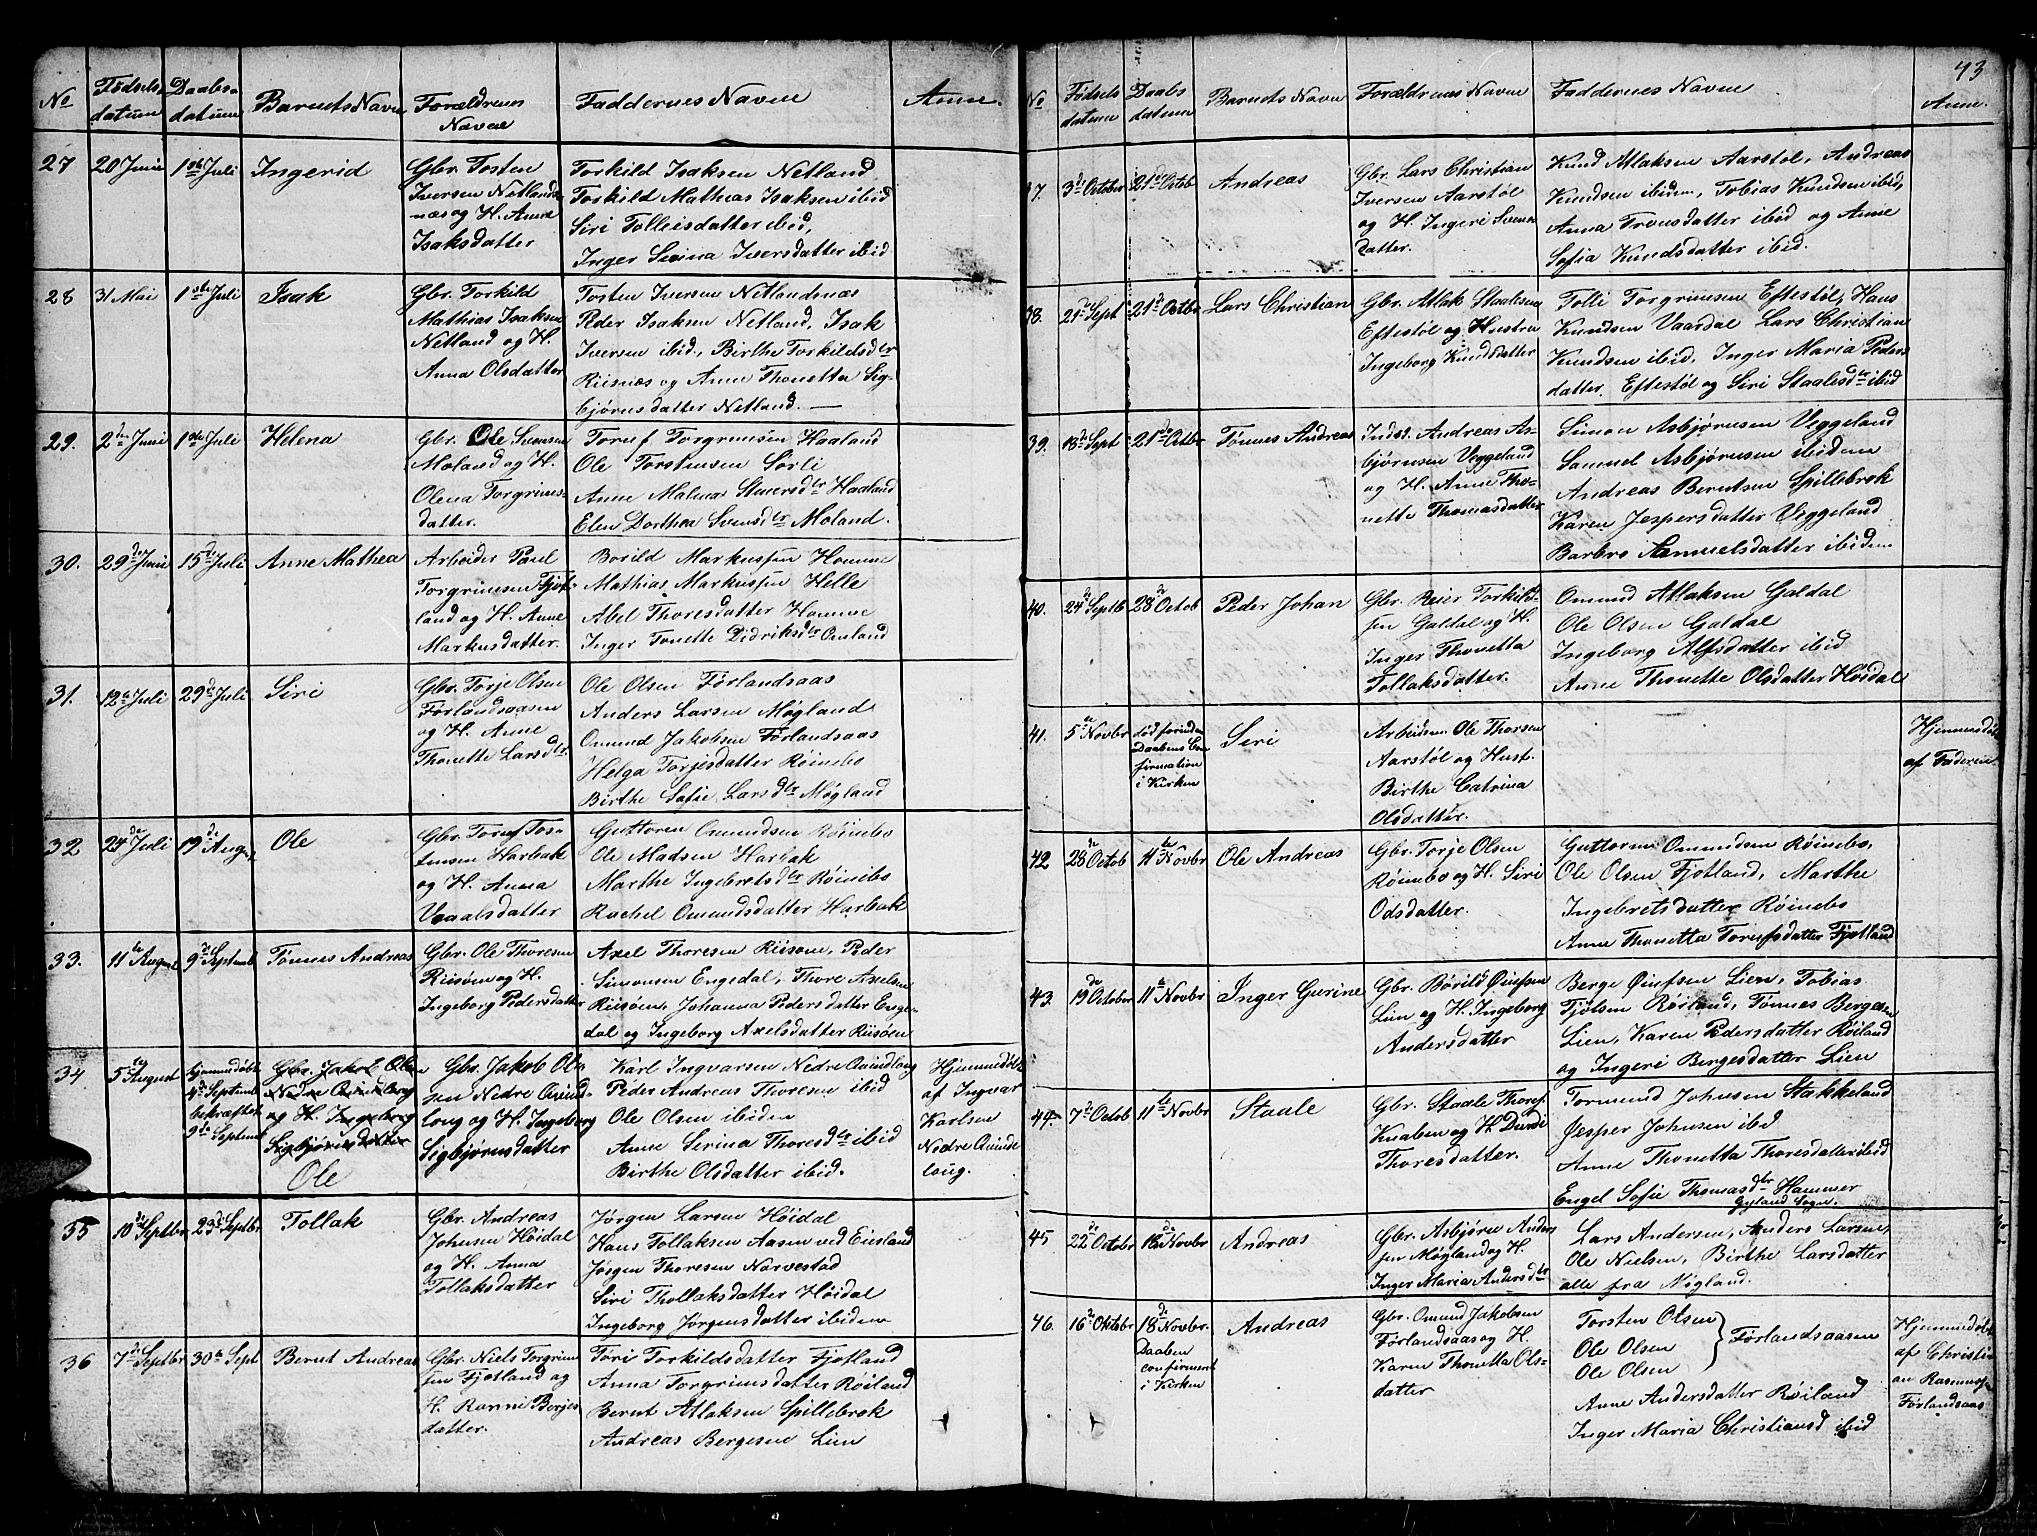 No
Fødsels-
datum
Daabs-
datum
Barnets Navn
Forældrenes
Navne
Faddernes Navne
Anm.
27
20 Juni
1ste Juli
Ingerid
Gbr. Tosten
Iversen Netlands-
næs og H. Anne
Isaksdatter
Torkild Isaksen Netland
Torkild Mathias Isaksen ibid
Siri Tolleisdatter ibid,
Inger Serina Iversdatter ibid
28
31 Mai
1ste Juli
Isak
Gbr. Torkild
Mathias Isaksen
Netland og H.
Anna Olsdatter
Tosten Iversen Netlandsnæs
Peder Isaksen Netland, Isak
Iversen ibid, Birthe Torkildsdtr
Riisnæs og Anne Thonetta Sig-
bjørnsdatter Netland.
29.
2den Juni
1ste Juli
Helena
Gbr. Ole Svensen
Moland og H.
Olena Torgrims-
datter.
Toruf Torgrimsen Haaland
Ole Torstensen Sørli
Anne Malena Stenersdtr Haaland
Elen Dorthea Svensdtr Moland.
30.
29de Juni
15de Juli
Anne Mathea
Arbeider Paul
Torgrimsen Fjot-
land og H. Anne
Markusdatter.
Borild Markussen Homme
Mathias Markussen Helle
Abel Thoresdatter Homme
Inger Tonette Didriksdtr Omland
31.
12te Juli
29de Juli
Siri
Gbr. Torje Olsen
Førlandsaasen
og H. Anne
Thonette Larsdtr.
Ole Olsen Førlandsaas
Anders Larsen Møgland
Omund Jakobsen Førlandsaas
Helga Torjesdatter Røinebo
Birthe Sofie Larsdtr Møgland
32
24de Juli
19de Aug.
Ole
Gbr. Toruf Tos-
tensen Harbak
og H. Anna
Vraalsdatter
Guttorm Omundsen Røinebo
Ole Madsen Harbak
Marthe Ingebretsdtr Røinebo
Rachel Omundsdatter Harbak
33.
11te August
9de Septemb
Tønnes Andreas
Gbr. Ole Thoresen
Riisøen og H.
Ingeborg Pedersdatter
Axel Thoresen Riisøen, Peder
Simonsen Engedal, Thore Axelsen
Riisøen, Johanna Pedersdatter Enge-
dal og Ingeborg Axelsdatter Riisøen
34
5te August
hjemmedøbt
4de Septemb
bekræftet
9de Septemb
Gbr. Jakob Olsen
Nedre Qvinlong
og H. Ingeborg
Sigbjørnsdatter
Ole
Gbr. Jakob Ol-
sen Nedre Qvind-
long og H. Ingeborg
Sigbjørnsdatter
Karl Ingvarsen Nedre Qvindlong
Peder Andreas Thoresen ibid
Ole Olsen ibiden
Anne Serina Thoresdtr ibid
Birthe Olsdatter ibid.
Hjemmedøbt
af Ingvar
Karlsen
Nedre Qvind-
long.
35
10de Septbr
23de Septbr.
Tollak
Gbr. Andreas
Johnsen Høidal
og H. Anna
Tollaksdatter
Jørgen Larsen Høidal
Hans Tollaksen Aasen ved Eiesland
Jørgen Thoresen Narvestad
Siri Thollaksdatter Høidal
Ingeborg Jørgensdatter ibidem
36
7de Septbr
30te Sept
Bernt Andreas
Gbr. Niels Torgrim-
sen Fjotland og
H. Ranni Borjes-
datter.
Tøri Torkildsdatter Fjotland
Anna Torgrimsdatter Røiland
Bernt Atlaksen Spillebrok
Andreas Bergesen Lien
43
No
Fødsels
datum
Daabs
datum
Barnets Navn
Forældrenes Navne
Faddernes Navne
Anm.
37.
3de October
21de Octob
Andreas
Gbr. Lars Christian
Iversen Aarstøl
og H. Ingeri Svens-
datter.
Knud Atlaksen Aarstøl, Andreas
Knudsen ibidem, Tobias Knudsen ibid,
Anna Tronsdatter ibid og Anne
Sofia Knudsdatter ibid.
38.
21de Sept
21de Octbr
Lars Christian
Gbr. Atlak Staalesen
Eftestøl og Hustru
Ingeborg Knudsdatter
Tolli Torgrimsen Eftestøl, Hans
Knudsen Vaardal Lars Christian
Knudsen ibid, Inger Maria Peders
datter. Eftestøl og Siri Staalesdtr ibid
39.
18de Sept
21de Octbr
Tønnes Andreas
Indsd. Andreas As-
bjørnsen Veggeland
og H. Anne Tho-
nette Thomasdatter
Simon Asbjørnsen Veggeland
Samuel Asbjørnsen ibidem
Andreas Berntsen Spillebrok
Karen Jespersdatter Veggeland
Barbro Samuelsdatter ibidem
40.
24de Septb
28de Octob
Peder Johan
Gbr. Reier Torkild-
sen Galdal og H.
Inger Thonetta
Tollaksdatter.
Omund Atlaksen Galdal
Ole Olsen Galdal
Ingeborg Alfsdatter ibid
Anne Thonette Olsdatter Høidal
41.
5te Novbr
død forinden
Daabens Con-
firmation
i Kirken
Siri
Arbeidsm. Ole Thorsen
Aarstøl og Hust.
Birthe Catrina
Olsdatter.
Hjemmedøbt
af Faderen
42.
28de Octob
11te Novbr
Ole Andreas
Gbr. Torje Olsen
Røinebo og H. Siri
Odsdatter.
Guttorm Omundsen Røinebo,
Ole Olsen Fjotland, Marthe
Ingebretsdatter Røinebo
Anne Thonetta Torufsdatter Fjotland
43.
19de October
11te Novbr
Inger Gurine
Gbr. Børild Øiufsen
Lien og H. Ingeborg
Andersdatter
Berge Øiufsen Lien, Tobias
Fjølsen Røiland, Tønnes Bergesen
Lien, Karen Pedersdatter Røiland
og Ingeri Bergesdatter Lien
44.
7de Octob
11te Novbr
Staale
Gbr. Staale Thores.
Knaben og H. Durdi
Thoresdatter.
Tormund Johnsen Stakkeland
Jesper Johnsen ibid
Anne Thonetta Thoresdatter ibid
Engel Sofie Thomasdtr Hammer
Gyland Sogn.
45
22de Octobr
18de Novbr
Andreas
Gbr. Asbjørn Anders
sen Møgland og H.
Inger Maria Andersdtr
Lars Andersen, Anders Larsen,
Ole Nielsen, Birthe Larsdatter
alle fra Møgland.
46.
16de Oktobr
18de Novbr.
Daaben
confirmeret
i Kirken
Andreas
Gbr. Omund Jakobsen
Førlandsaas og H.
Karen Thonetta Ols-
datter
Torsten Olsen
Ole Olsen
Ole Olsen
Førlandsaasen
Anne Andersdatter Røiland
Inger Maria Christiansd ibid
Hjemmedøbt
af Christi-
an Rasmuss.
Førlandsaas